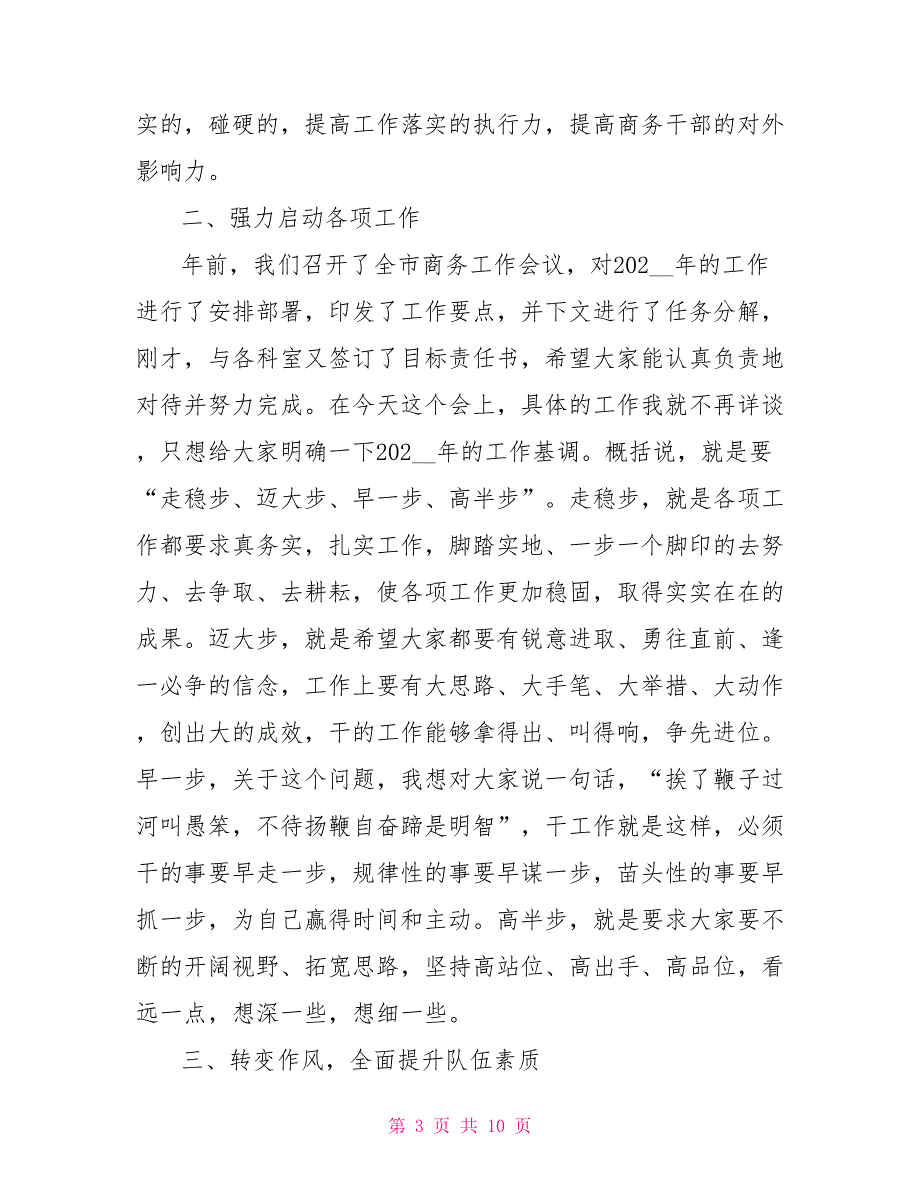 实的，碰硬的，提高工作落实的执行力，提高商务干部的对外
影响力。
二、强力启动各项工作
年前，我们召开了全市商务工作会议，对202__年的工作
进行了安排部署，印发了工作要点，并下文进行了任务分解，
刚才，与各科室又签订了目标责任书，希望大家能认真负责地
对待并努力完成。在今天这个会上，具体的工作我就不再详谈
，只想给大家明确一下202__年的工作基调。概括说，就是要
“走稳步、迈大步、早一步、高半步”。走稳步，就是各项工
作都要求真务实，扎实工作，脚踏实地、一步一个脚印的去努
力、去争取、去耕耘，使各项工作更加稳固，取得实实在在的
成果。迈大步，就是希望大家都要有锐意进取、勇往直前、逢
一必争的信念，工作上要有大思路、大手笔、大举措、大动作
，创出大的成效，干的工作能够拿得出、叫得响，争先进位。
早一步，关于这个问题，我想对大家说一句话，“挨了鞭子过
河叫愚笨，不待扬鞭自奋蹄是明智”，干工作就是这样，必须
干的事要早走一步，规律性的事要早谋一步，苗头性的事要早
抓一步，为自己赢得时间和主动。高半步，就是要求大家要不
断的开阔视野、拓宽思路，坚持高站位、高出手、高品位，看
远一点，想深一些，想细一些。
三、转变作风，全面提升队伍素质
第 3 页 共 10 页